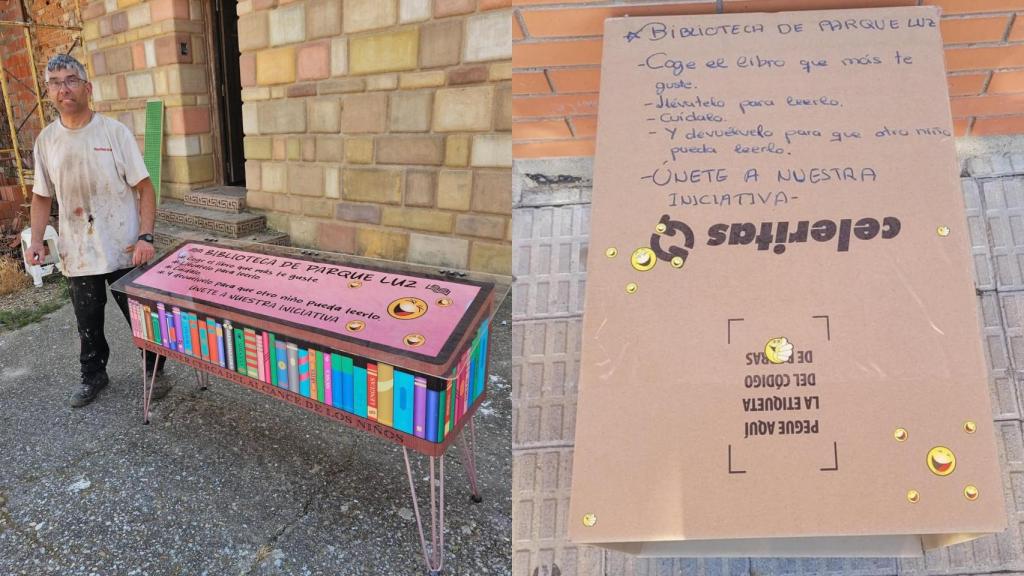 BIBLIOTECA DE PARQUE LUZ
Coge el libro que más te guste
Llévatelo para leerlo
Cuídalo
Y devuélvelo para que otro niño pueda leerlo
ÚNETE A NUESTRA INICIATIVA
CERCA DEL ALCANCE DE LOS NIÑOS
BIBLIOTECA DE PARQUE LUZ
- Coge el libro que más te
guste.
- Llévatelo para leerlo.
- Cuídalo.
- Y devuélvelo para que otro niño
pueda leerlo.
- ÚNETE A NUESTRA
INICIATIVA-
celeritas
PEGUE AQUÍ
LA ETIQUETA
DEL CÓDIGO
DE RAS